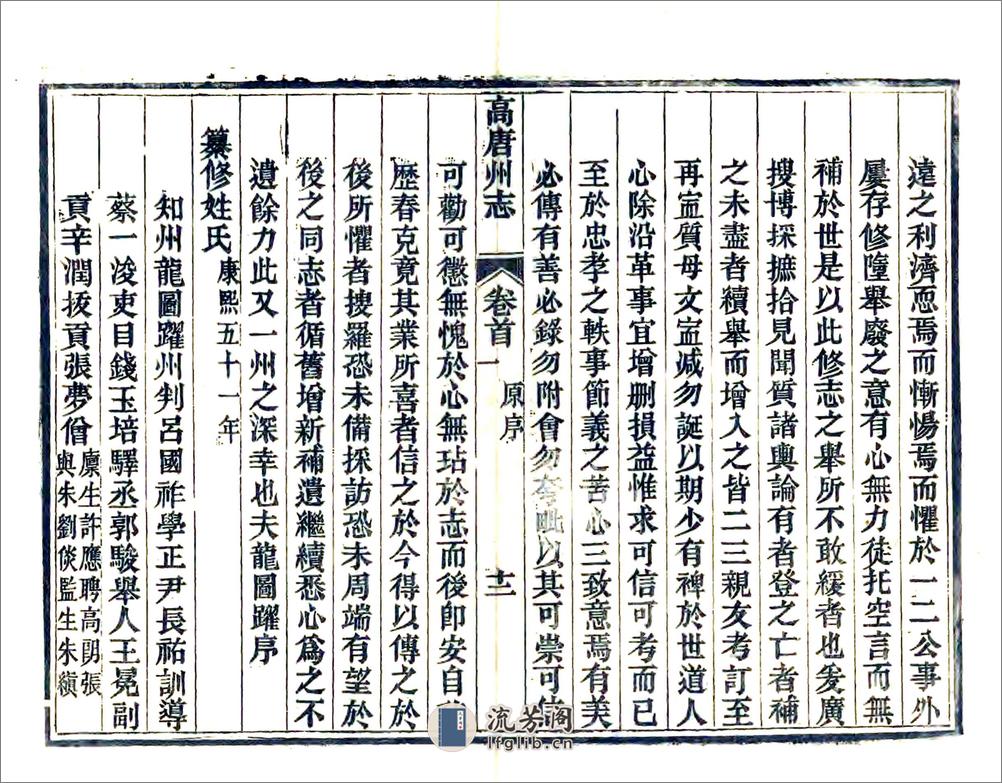 遠之利濟恧焉而慚惕焉而懼於一二公事外
屢存修墮舉廢之意有心無力徒托空言而無
補於世是以此修志之舉所不敢緩者也爰廣
搜博採摭拾見聞質諸輿論有者登之亡者補
之未盡者續舉而增入之皆二三親友考訂至
再寍質毋文寍減勿誕以期少有裨於世道人
心除沿革事宜增刪損益惟求可信可考而已
至於忠孝之軼事節義之苦心三致意焉有美
必傳有善必錄勿附會勿夸毗以其可崇可
高唐州志 卷首一 原序 十二
可勸可懲無愧於心無玷於志而後卽安自
歷春克竟其業所喜者信之於今得以傳之於
後所懼者搜羅恐未備採訪恐未周端有望於
後之同志者循舊增新補遺繼續悉心爲之不
遺餘力此又一州之深幸也夫龍圖躍序
纂修姓氏 康熙五十一年
知州龍圖躍州判呂國祚學正尹長祐訓導
蔡一浚吏目錢玉培驛丞郭駿舉人王冕副
貢辛潤拔貢張夢僧 廩生許應聘高朗張
與朱劉倓監生朱縝
流芳閣
lfglib.cn